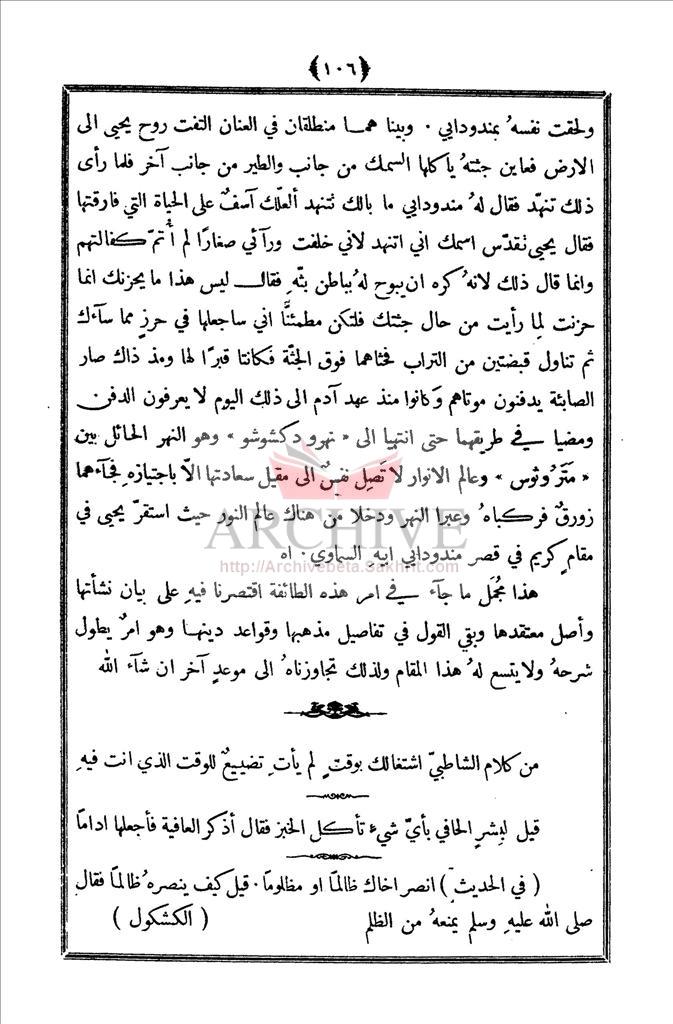 ﴿١٠٦﴾
ولحقت نفسهُ بمندودابي ٠ وبينا هما منطلقان في العنان التفت روح يحيى الى
الارض فعاين جثتهُ يأكلها السمك من جانب والطير من جانب آخر فلما رأى
ذلك تنهّد فقال لهُ مندودابي ما بالك تتنهد ألعلّك آسفٌ على الحياة التي فارقتها
فقال يحيى نقدّس اسمك اني اتنهد لاني خلفت ورآئي صغارًا لم أُتمّ كفالتهم
وانما قال ذلك لانهُ كره ان يبوح لهُ بباطن بثّهِ فقال ليس هذا ما يحزنك انما
حزنت لِما رأيت من حال جثتك فلتكن مطمئنًّا اني ساجعلها في حرزٍ مما سآءك
ثم تناول قبضتين من التراب فحثاهما فوق الجثّة فكانتا قبرًا لها ومذ ذاك صار
الصابئة يدفنون موتاهم وكانوا منذ عهد آدم الى ذلك اليوم لا يعرفون الدفن
ومضيا في طريقهما حتى انتهيا الى « نهرو دكشوشو » وهو النهر الحائل بين
« مَتَرُوثوس » وعالم الانوار لا تَصِل نفسٌ الى مقيل سعادتها الّا باجتيازه فجآءهما
زورقٌ فركباهُ وعبرا النهر ودخلا من هناك عالم النور حيث استقرّ يحيى في
مقامٍ كريم في قصر مندودابي ابيهِ السماوي ٠ اه
هذا مُجمَل ما جآء في امر هذه الطائفة اقتصرنا فيهِ على بيان نشأتها
وأصل معتقدها وبقي القول في تفاصيل مذهبها وقواعد دينها وهو امرٌ يطول
شرحهُ ولا يتسع لهُ هذا المقام ولذلك تجاوزناهُ الى موعدٍ آخر ان شآء الله
من كلام الشاطبيّ اشتغالك بوقتٍ لم يأتِ تضييعٌ للوقت الذي انت فيهِ
قيل لبِشرٍ الحافي بأيّ شيءٍ تأكل الخبز فقال أذكر العافية فأجعلها ادامًا
( في الحديث ) انصر اخاك ظالمًا او مظلومًا ٠ قيل كيف ينصرهُ ظالمًا فقال
صلى الله عليهِ وسلم يمنعهُ من الظلم ( الكشكول )
ARCHIVE
http://Archivebeta.Sakhrit.com